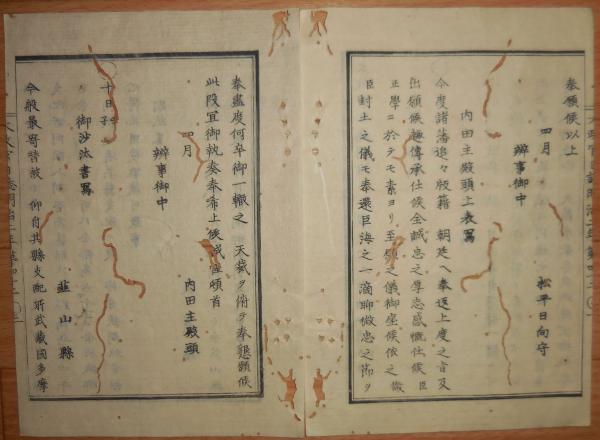 奉願候以上
四月
松平日向守
辨事御中
内田主殿頭上表寫
今度諸藩追々版籍 朝廷ヘ奉返上度之旨及
出願候趣傳承仕候全誠忠之厚志感慨仕候臣
正學ニ於テモ素ヨリ至願之儀御座候依之微
臣封土之儀モ奉還巨海之一滴聊微忠之節ヲ
奉盡度何卒御一轍之 天裁ヲ俯テ奉懇願候
此段宜御執奏奉希上候誠惶頓首
四月
内田主殿頭
辨事御中
十日
御沙汰書寫
韮山縣
今般最寄替被 仰付其縣支配所武藏國多摩